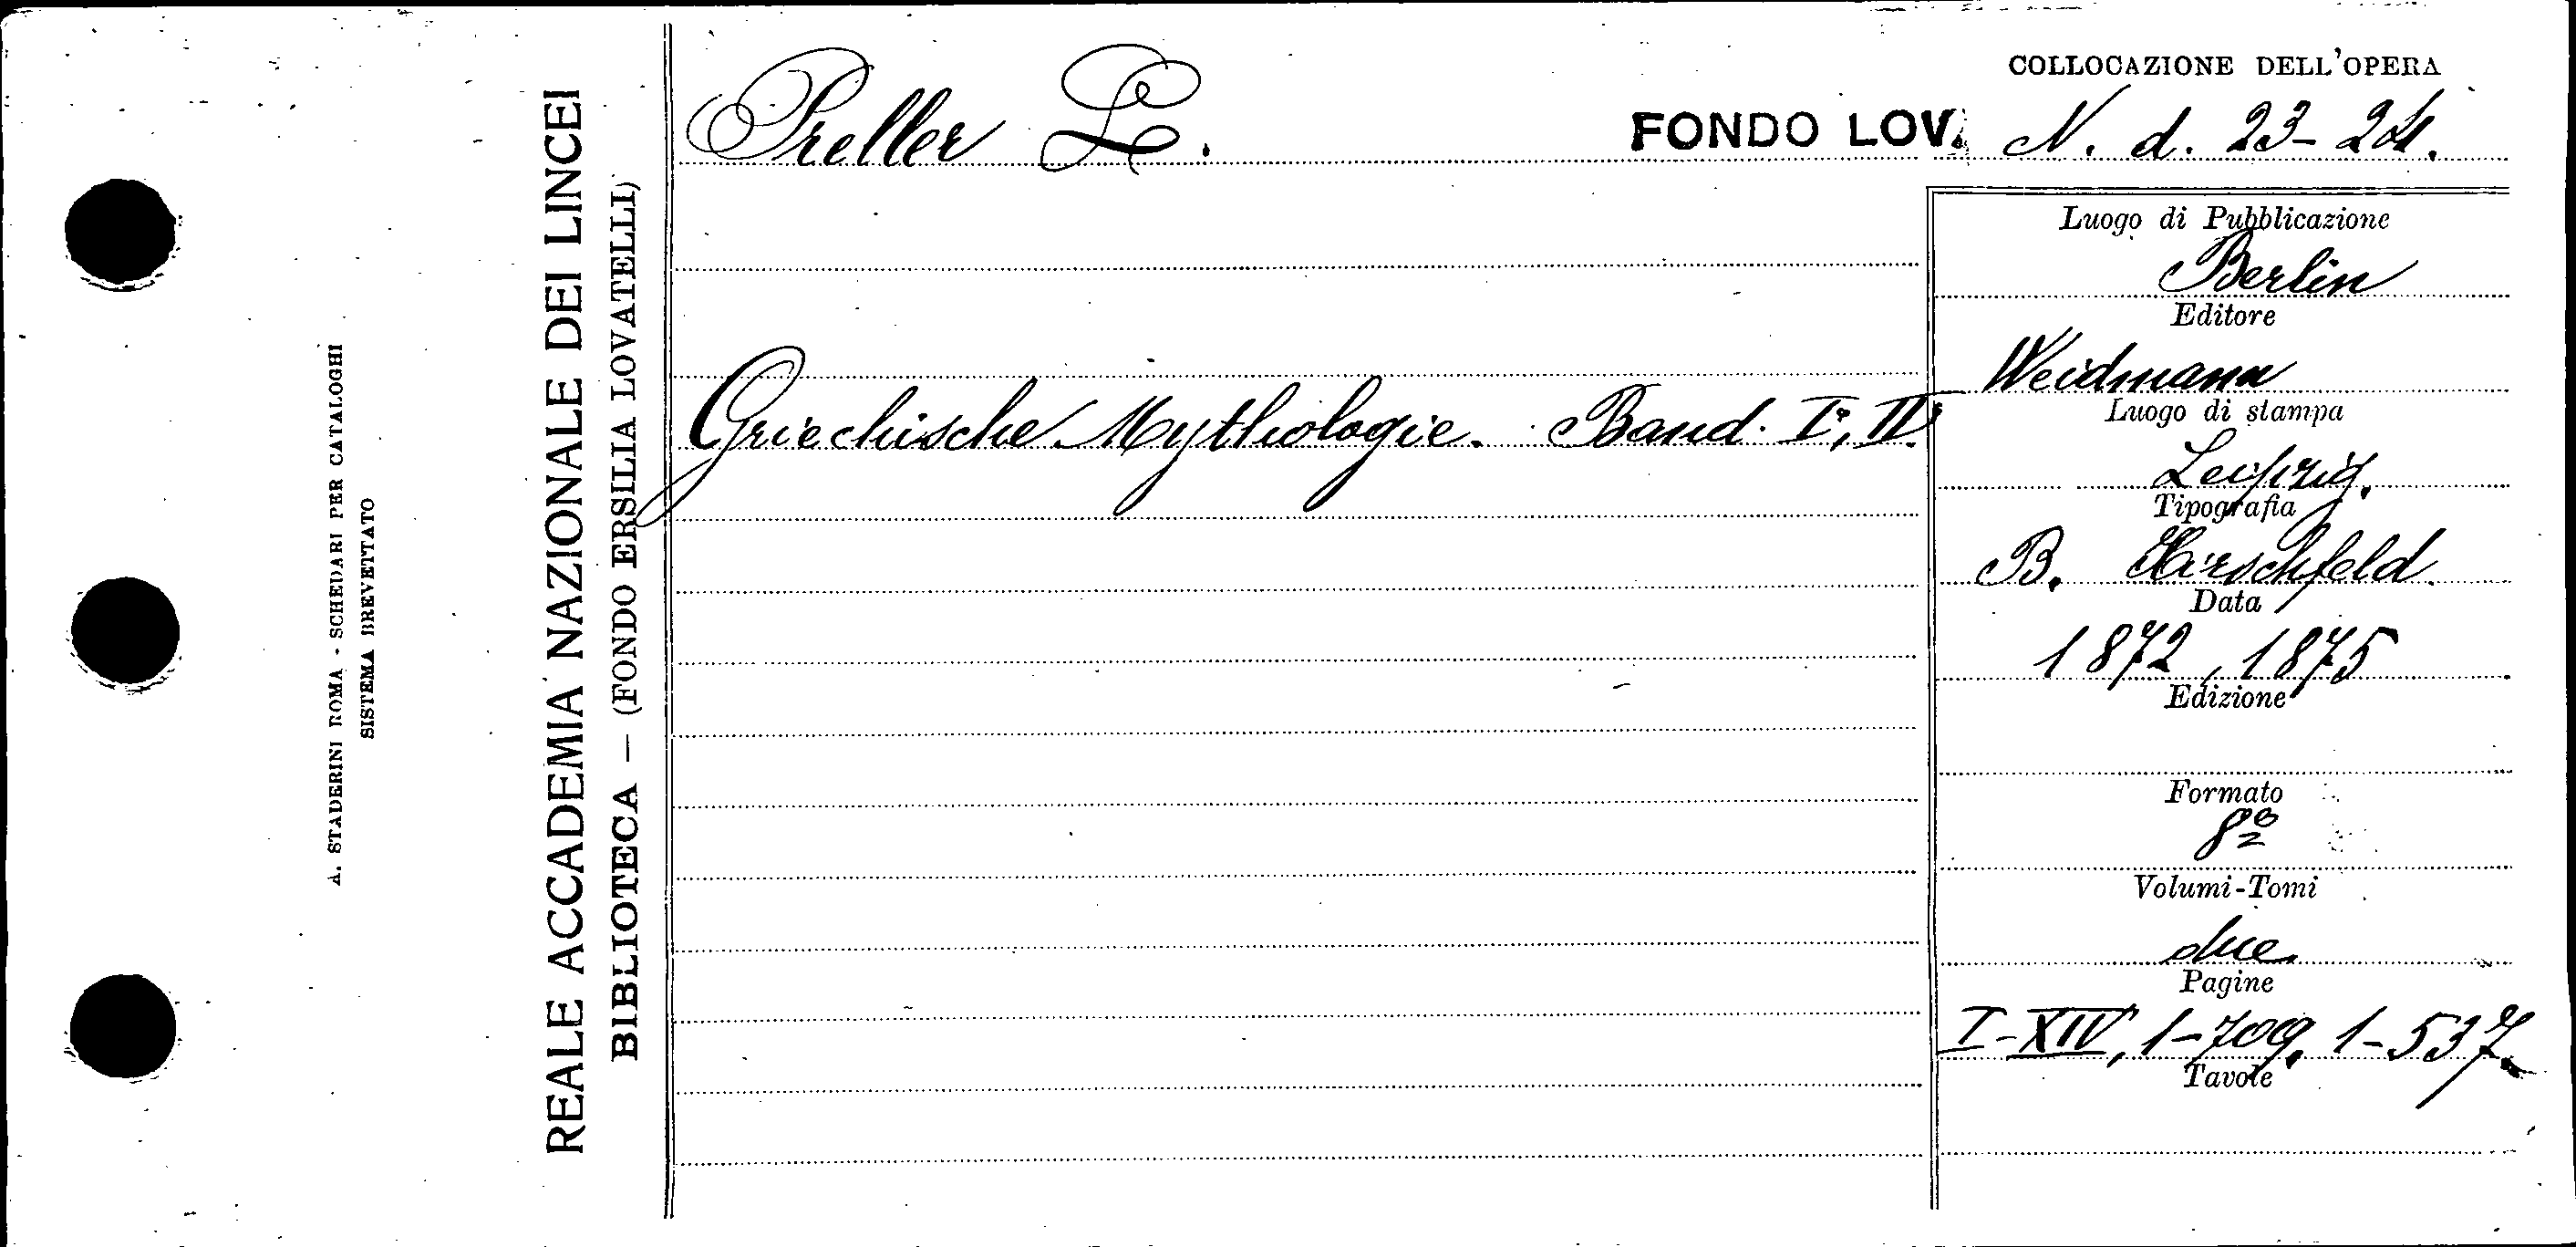 A. STADERINI ROMA - SCHEDARI PER CATALOGHI
SISTEMA BREVETTATO
REALE ACCADEMIA NAZIONALE DEI LINCEI
BIBLIOTECA — (FONDO ERSILIA LOVATELLI)
Preller L.
Griechische Mythologie. Band. I, II.
COLLOCAZIONE DELL'OPERA
FONDO LOV. N. d. 23-24.
Luogo di Pubblicazione
Berlin
Editore
Weidmann
Luogo di stampa
Leipzig.
Tipografia
B. Hirschfeld.
Data
1872, 1875
Edizione
Formato
8º
Volumi-Tomi
due
Pagine
I-XIV, 1-709, 1-537.
Tavole